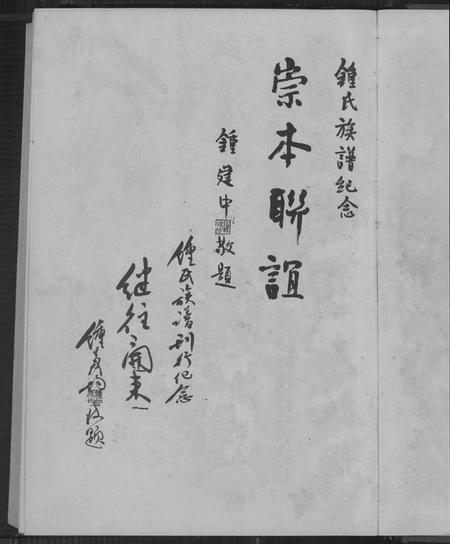 鍾氏族譜紀念
崇本聯誼
鍾建中敬題
鍾氏族譜刊行纪念
继往開来
鍾 題